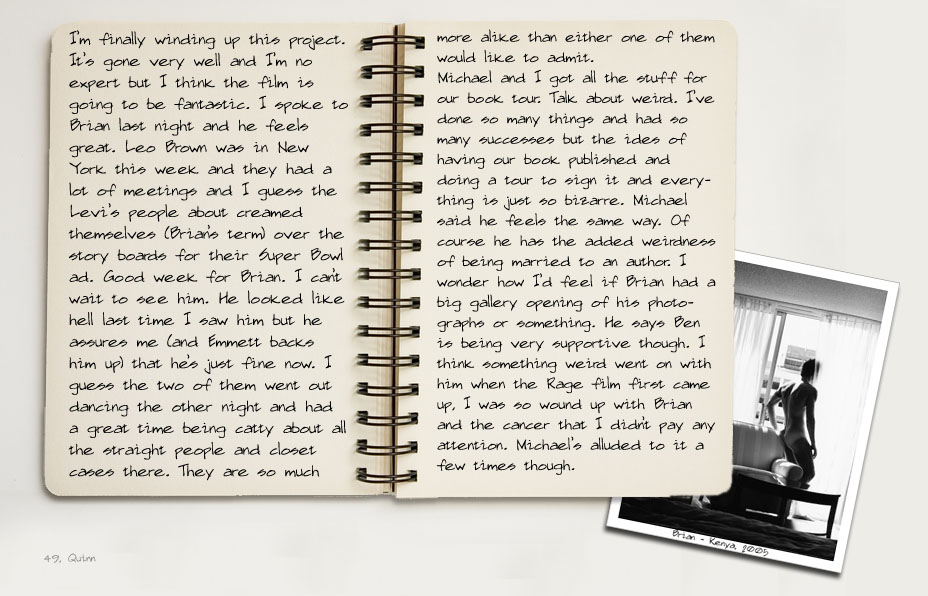 I'm finally winding up this project.
It's gone very well and I'm no
expert but I think the film is
going to be fantastic. I spoke to
Brian last night and he feels
great. Leo Brown was in New
York this week and they had a
lot of meetings and I guess the
Levi's people about creamed
themselves (Brian's term) over the
story boards for their Super Bowl
ad. Good week for Brian. I can't
wait to see him. He looked like
hell last time I saw him but he
assures me (and Emmett backs
him up) that he's just fine now. I
guess the two of them went out
dancing the other night and had
a great time being catty about all
the straight people and closet
cases there. They are so much
more alike than either one of them
would like to admit.
Michael and I got all the stuff for
our book tour. Talk about weird. I've
done so many things and had so
many successes but the ides of
having our book published and
doing a tour to sign it and every-
thing is just so bizarre. Michael
said he feels the same way. Of
course he has the added weirdness
of being married to an author. I
wonder how I'd feel if Brian had a
big gallery opening of his photo-
graphs or something. He says Ben
is being very supportive though. I
think something weird went on with
him when the Rage film first came
up, I was so wound up with Brian
and the cancer that I didn't pay any
attention. Michael's alluded to it a
few times though.
Brian - Kenya, 2005
49, Quinn